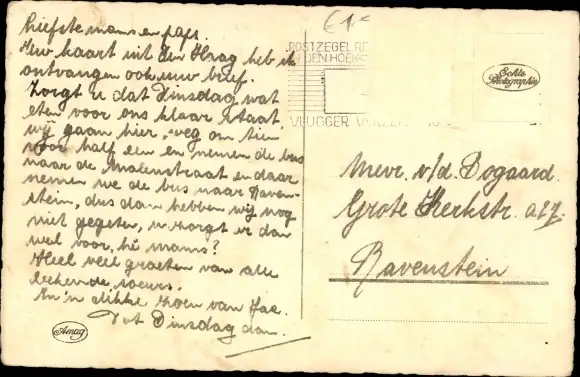 Liefste mams en paps.
Uw kaart uit den Haag heb ik
ontvangen ook uw brief.
Zorgt u dat Dinsdag wat
eten voor ons klaar staat.
wij gaan hier weg om tien
voor half een en nemen de bus
naar de Molenstraat en daar
nemen we de bus naar Raven-
stein, dus dan hebben wij nog
niet gegeten, u zorgt er dan
wel voor, hè mams?
Heel veel groeten van alle
bekende soeurs.
En 'n dikke zoen van Jac.
Tot Dinsdag dan.
Amag
€1-
POSTZEGEL RE
EN DEN HOEK
VLUGGER
Echte
Photographie
Mevr. v/d. Bogaard.
Grote Kerkstr.
Ravenstein